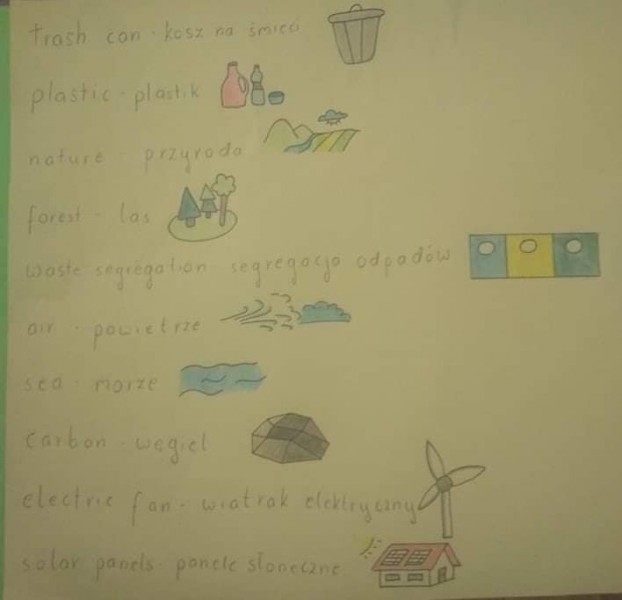 trash can - kosz na śmieci
plastic - plastik
nature przyroda
forest - las
waste segregation segregacja odpadów
air - powietrze
sea - morze
carbon - węgiel
electric fan - wiatrak elektryczny
solar panels - panele słoneczne